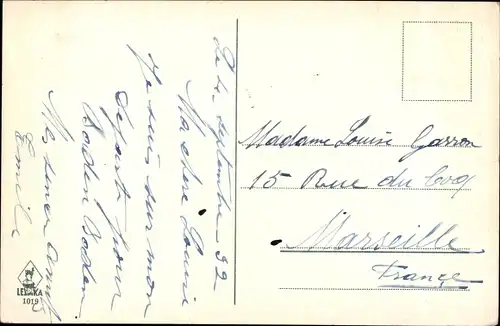 Le 4 septembre 32
Ma chère Louise
Je suis sur mon
départ pour
Baden Baden
Emile
Madame Louise Garron
15 Rue du Coq
Marseille
France
LEKKA
1019